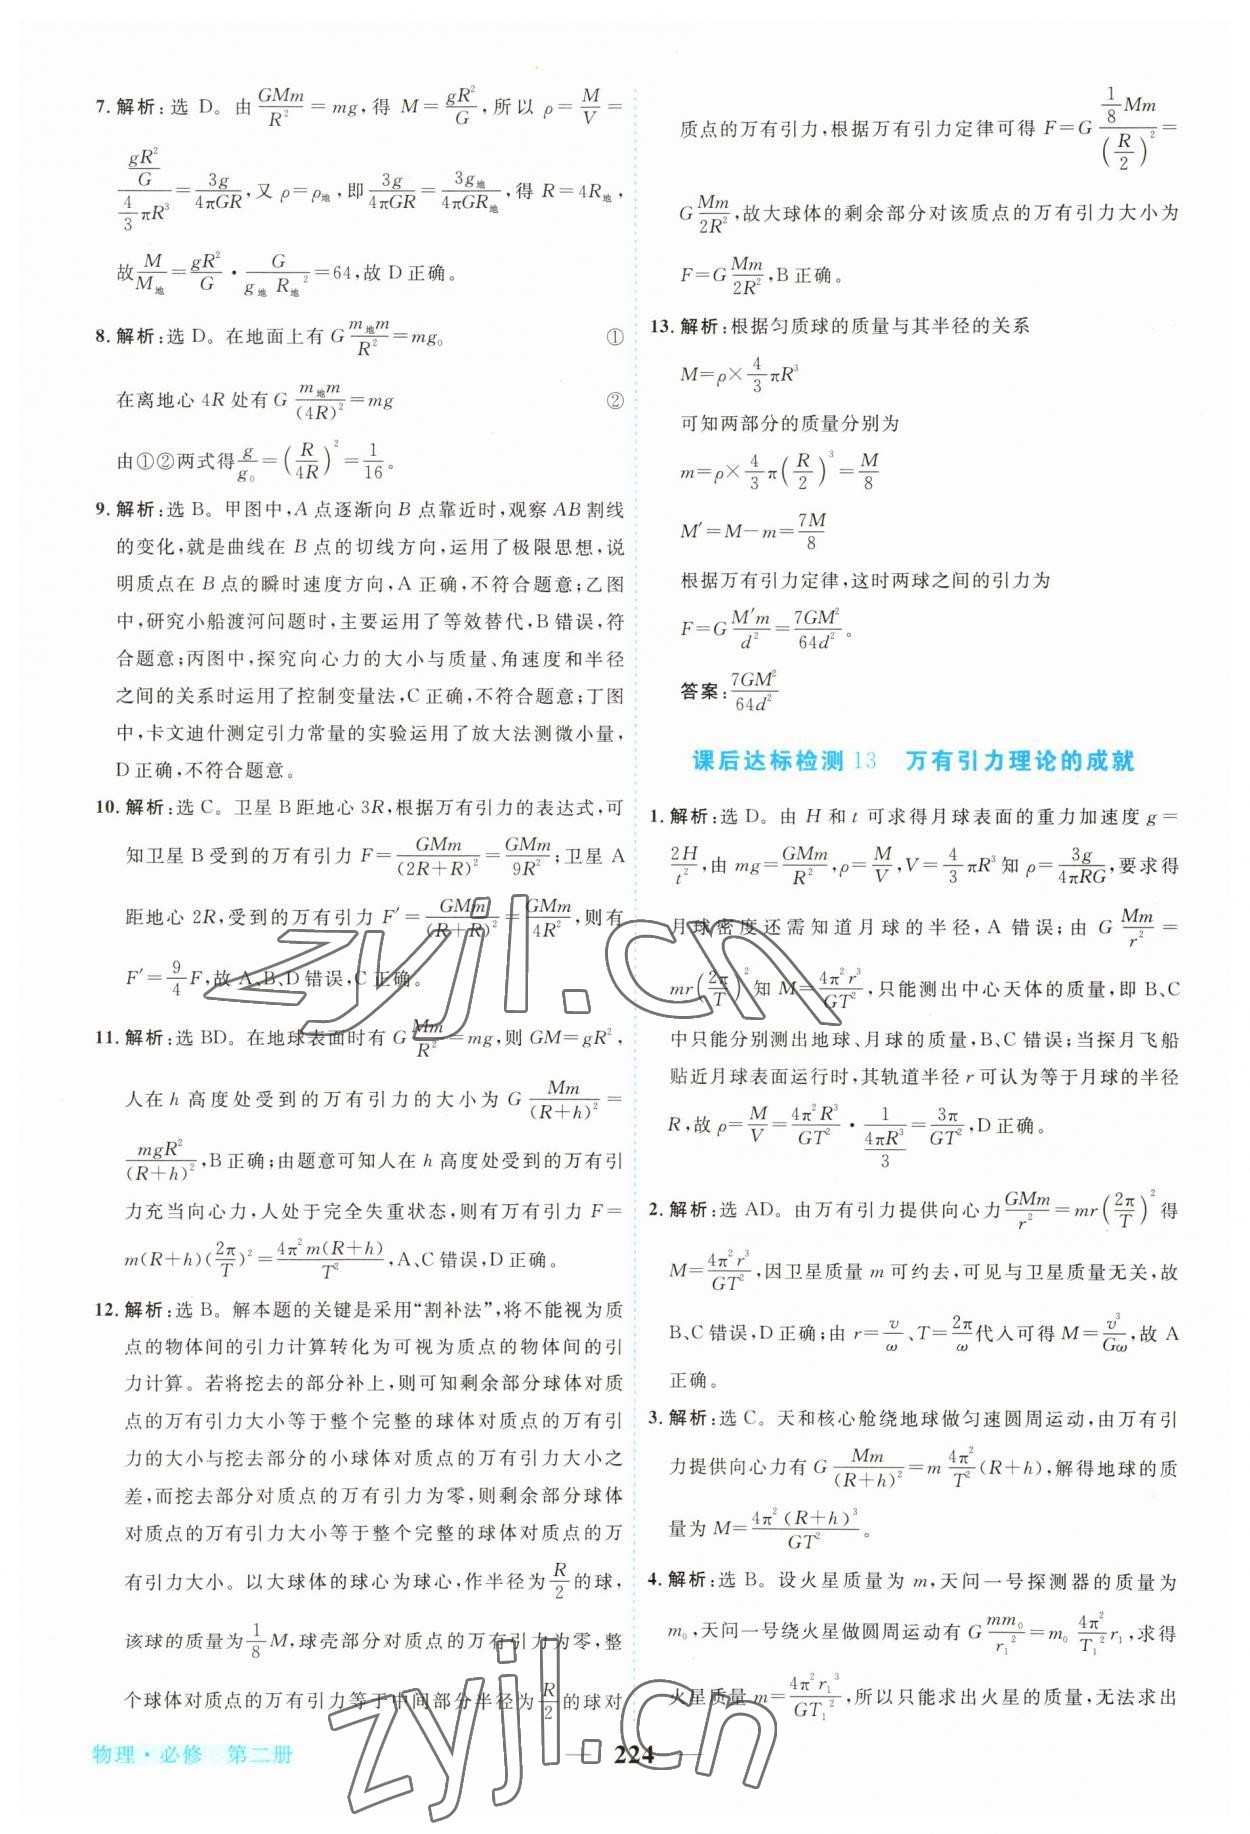 7. 解析:选 D。由$\frac{GMm}{R^2}=mg$,得 $M=\frac{gR^2}{G}$,所以 $\rho=\frac{M}{V}=$
$\frac{\frac{gR^2}{G}}{\frac{4}{3}\pi R^3}=\frac{3g}{4\pi GR}$,又 $\rho=\rho_地$,即$\frac{3g}{4\pi GR}=\frac{3g_地}{4\pi GR_地}$,得 $R=4R_地$,
故$\frac{M}{M_地}=\frac{gR^2}{G}\cdot\frac{G}{g_地R_地^2}=64$,故 D 正确。
8. 解析:选 D。在地面上有 $G\frac{m_地m}{R^2}=mg_0$ ①
在离地心 4R 处有 $G\frac{m_地m}{(4R)^2}=mg$ ②
由①②两式得$\frac{g}{g_0}=\left(\frac{R}{4R}\right)^2=\frac{1}{16}$。
9. 解析:选 B。甲图中,A 点逐渐向 B 点靠近时,观察 AB 割线
的变化,就是曲线在 B 点的切线方向,运用了极限思想,说
明质点在 B 点的瞬时速度方向,A 正确,不符合题意;乙图
中,研究小船渡河问题时,主要运用了等效替代,B 错误,符
合题意;丙图中,探究向心力的大小与质量、角速度和半径
之间的关系时运用了控制变量法,C 正确,不符合题意;丁图
中,卡文迪什测定引力常量的实验运用了放大法测微小量,
D 正确,不符合题意。
10. 解析:选 C。卫星 B 距地心 3R,根据万有引力的表达式,可
知卫星 B 受到的万有引力 $F=\frac{GMm}{(2R+R)^2}=\frac{GMm}{9R^2}$;卫星 A
距地心 2R,受到的万有引力 $F'=\frac{GMm}{(R+R)^2}=\frac{GMm}{4R^2}$,则有
$F'=\frac{9}{4}F$,故 A、B、D 错误,C 正确。
11. 解析:选 BD。在地球表面时有 $G\frac{Mm}{R^2}=mg$,则 $GM=gR^2$,
人在 h 高度处受到的万有引力的大小为 $G\frac{Mm}{(R+h)^2}=$
$\frac{mgR^2}{(R+h)^2}$,B 正确;由题意可知人在 h 高度处受到的万有引
力充当向心力,人处于完全失重状态,则有万有引力 F=
$m(R+h)(\frac{2\pi}{T})^2=\frac{4\pi^2m(R+h)}{T^2}$,A、C 错误,D 正确。
12. 解析:选 B。解本题的关键是采用“割补法”,将不能视为质
点的物体间的引力计算转化为可视为质点的物体间的引
力计算。若将挖去的部分补上,则可知剩余部分球体对质
点的万有引力大小等于整个完整的球体对质点的万有引
力的大小与挖去部分的小球体对质点的万有引力大小之
差,而挖去部分对质点的万有引力为零,则剩余部分球体
对质点的万有引力大小等于整个完整的球体对质点的万
有引力大小。以大球体的球心为球心,作半径为$\frac{R}{2}$的球,
该球的质量为$\frac{1}{8}M$,球壳部分对质点的万有引力为零,整
个球体对质点的万有引力等于中间部分半径为$\frac{R}{2}$的球对
质点的万有引力,根据万有引力定律可得 $F=G\frac{\frac{1}{8}Mm}{\left(\frac{R}{2}\right)^2}=$
$G\frac{Mm}{2R^2}$,故大球体的剩余部分对该质点的万有引力大小为
$F=G\frac{Mm}{2R^2}$,B 正确。
13. 解析:根据匀质球的质量与其半径的关系
$M=\rho\times\frac{4}{3}\pi R^3$
可知两部分的质量分别为
$m=\rho\times\frac{4}{3}\pi\left(\frac{R}{2}\right)^3=\frac{M}{8}$
$M'=M-m=\frac{7M}{8}$
根据万有引力定律,这时两球之间的引力为
$F=G\frac{M'm}{d^2}=\frac{7GM^2}{64d^2}$。
答案:$\frac{7GM^2}{64d^2}$
课后达标检测 13 万有引力理论的成就
1. 解析:选 D。由 H 和 t 可求得月球表面的重力加速度 g=
$\frac{2H}{t^2}$,由 $mg=\frac{GMm}{R^2}$,$\rho=\frac{M}{V}$,$V=\frac{4}{3}\pi R^3$ 知 $\rho=\frac{3g}{4\pi RG}$,要求得
月球密度还需知道月球的半径,A 错误;由 $G\frac{Mm}{r^2}=$
$mr\left(\frac{2\pi}{T}\right)^2$知 $M=\frac{4\pi^2r^3}{GT^2}$,只能测出中心天体的质量,即 B、C
中只能分别测出地球、月球的质量,B、C 错误;当探月飞船
贴近月球表面运行时,其轨道半径 r 可认为等于月球的半径
R,故 $\rho=\frac{M}{V}=\frac{4\pi^2R^3}{GT^2}\cdot\frac{1}{\frac{4\pi R^3}{3}}=\frac{3\pi}{GT^2}$,D 正确。
2. 解析:选 AD。由万有引力提供向心力$\frac{GMm}{r^2}=mr\left(\frac{2\pi}{T}\right)^2$得
$M=\frac{4\pi^2r^3}{GT^2}$,因卫星质量 m 可约去,可见与卫星质量无关,故
B、C 错误,D 正确;由 $r=\frac{v}{\omega}$、$T=\frac{2\pi}{\omega}$代入可得 $M=\frac{v^3}{G\omega}$,故 A
正确。
3. 解析:选 C。天和核心舱绕地球做匀速圆周运动,由万有引
力提供向心力有 $G\frac{Mm}{(R+h)^2}=m\frac{4\pi^2}{T^2}(R+h)$,解得地球的质
量为 $M=\frac{4\pi^2(R+h)^3}{GT^2}$。
4. 解析:选 B。设火星质量为 m,天问一号探测器的质量为
$m_0$,天问一号绕火星做圆周运动有 $G\frac{mm_0}{r_1^2}=m_0\frac{4\pi^2}{T_1^2}r_1$,求得
火星质量 $m=\frac{4\pi^2r_1^3}{GT_1^2}$,所以只能求出火星的质量,无法求出
物理·必修 第二册
224
zyjl.cn
zyjl.cn